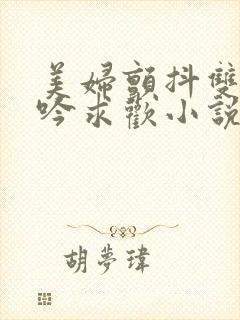 美婦顫抖雙
吟求歡小說
胡夢瑋